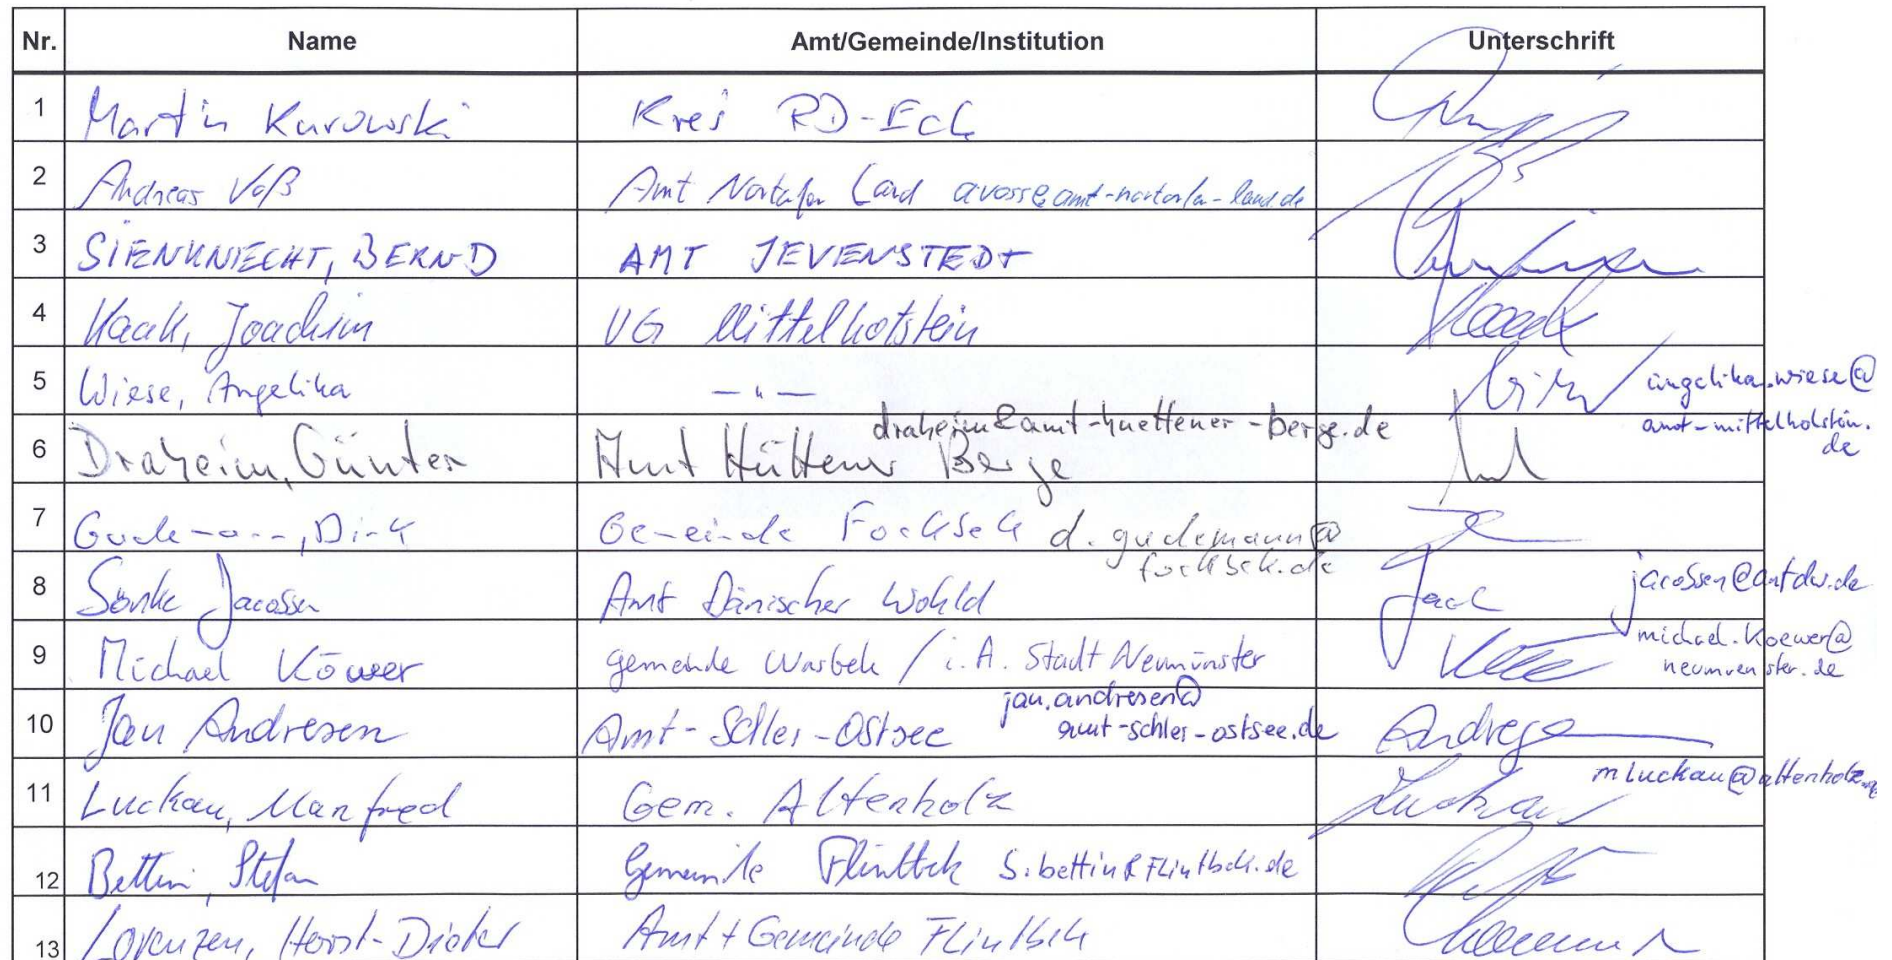 Nr. Name Amt/Gemeinde/Institution Unterschrift
1 Martin Kurowski Kreis RD-Eck
2 Andreas Voß Amt Nortorfer Land avoss@amt-nortorfer-land.de
3 SIENKNECHT, BERND AMT JEVENSTEDT
4 Kaak, Joachim VG Mittelholstein
5 Wiese, Angelika — " — angelika.wiese@
amt-mittelholstein.
de
draheim@amt-huettener-berge.de
6 Draheim, Günter Amt Hüttener Berge
7 Gudemann, Dirk Gemeinde Fockbek d.gudemann@
fockbek.de
8 Sönke Jacobsen Amt Dänischer Wohld jacobsen@amtdw.de
9 Michael Köwer gemeinde Wasbek / i.A. Stadt Neumünster michael.koewer@
neumuenster.de
jan.andresen@
10 Jan Andresen Amt-Schlei-Ostsee amt-schlei-ostsee.de Andresen
11 Luckau, Manfred Gem. Altenholz Luckau m.luckau@altenholz.de
12 Bettin, Stefan Gemeinde Flintbek s.bettin@flintbek.de
13 Lorenzen, Horst-Dieter Amt + Gemeinde Flintbek